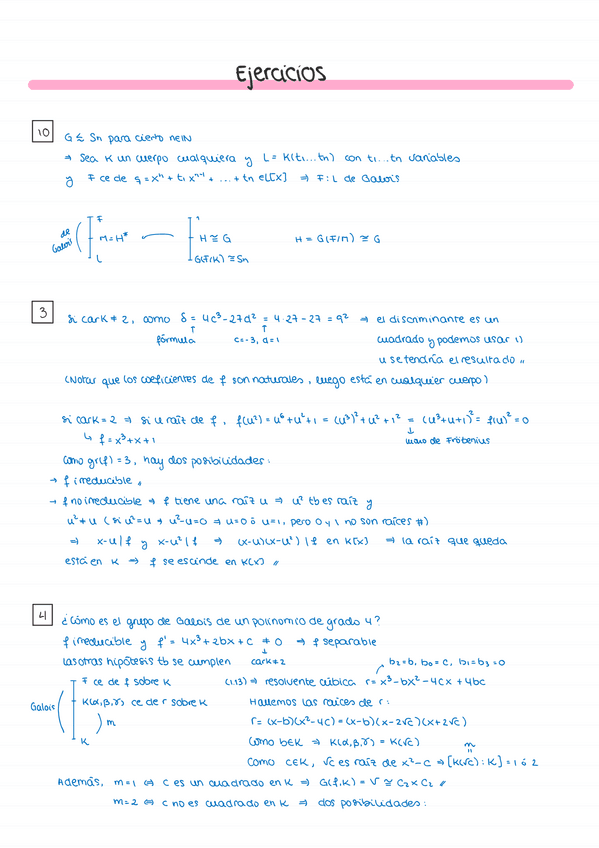 Ejercicios
10 G ≲ Sn para cierto n∈IN
⇒ Sea K un cuerpo cualquiera y L = K(t1...tn) con t1...tn variables
y F ce de q = x^n + t1 x^n-1 + ... + tn ∈L[x] ⇒ F:L de Galois
de Galois ( F
M=H*
L
1
H ≅ G
G(F/K) ≅ Sn
H = G(F/M) ≅ G
3 Si car K ≠ 2, como δ = 4c³-27d² = 4·27-27 = 9² ⇒ el discriminante es un
fórmula c=-3, d=1 cuadrado y podemos usar 1)
u se tendría el resultado
(Notar que los coeficientes de f son naturales, luego está en cualquier cuerpo)
Si car K = 2 ⇒ si u raíz de f, f(u²) = u⁶+u²+1 = (u³)²+u²+1² = (u³+u+1)² = f(u)² = 0
↳ f = x³+x+1 ↓ Frobenius
Como gr(f) = 3, hay dos posibilidades:
→ f irreducible
→ f no irreducible ⇒ f tiene una raíz u ⇒ u² tb es raíz y
u²≠u (si u²=u ⇒ u²-u=0 ⇒ u=0 ó u=1, pero 0 y 1 no son raíces #)
⇒ x-u|f y x-u²|f ⇒ (x-u)(x-u²)|f en K[x] ⇒ la raíz que queda
está en K ⇒ f se escinde en K[x]
4 ¿Cómo es el grupo de Galois de un polinomio de grado 4?
f irreducible y f' = 4x³+2bx+c ≠ 0 ⇒ f separable
Las otras hipótesis tb se cumplen car K≠2 b2=b, b0=c, b1=b3=0
F ce de f sobre K (1.13) ⇒ resolvente cúbica r = x³-bx²-4cx+4bc
Galois ( K(α,β,γ) ce de r sobre K
) m
K
Hallemos las raíces de r:
r = (x-b)(x²-4c) = (x-b)(x-2√c)(x+2√c)
Como b∈K ⇒ K(α,β,γ) = K(√c)
Como c∈K, √c es raíz de x²-c ⇒ [K(√c):K] = 1 ó 2
m
Además, m=1 ⇔ c es un cuadrado en K ⇒ G(f,K) = V ≅ C2×C2
m=2 ⇔ c no es cuadrado en K ⇒ dos posibilidades: